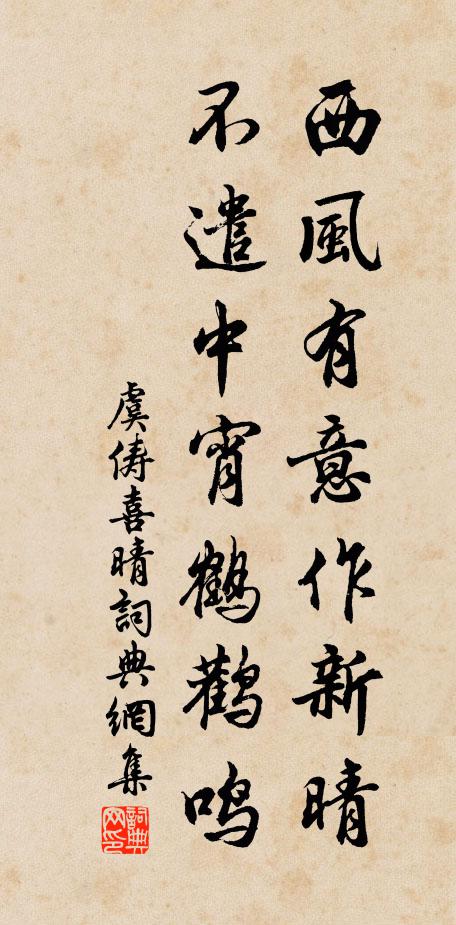 西風有意作新晴
不遣中宵鶴鸛鳴
虞儔喜晴詞典網集
詞典网印